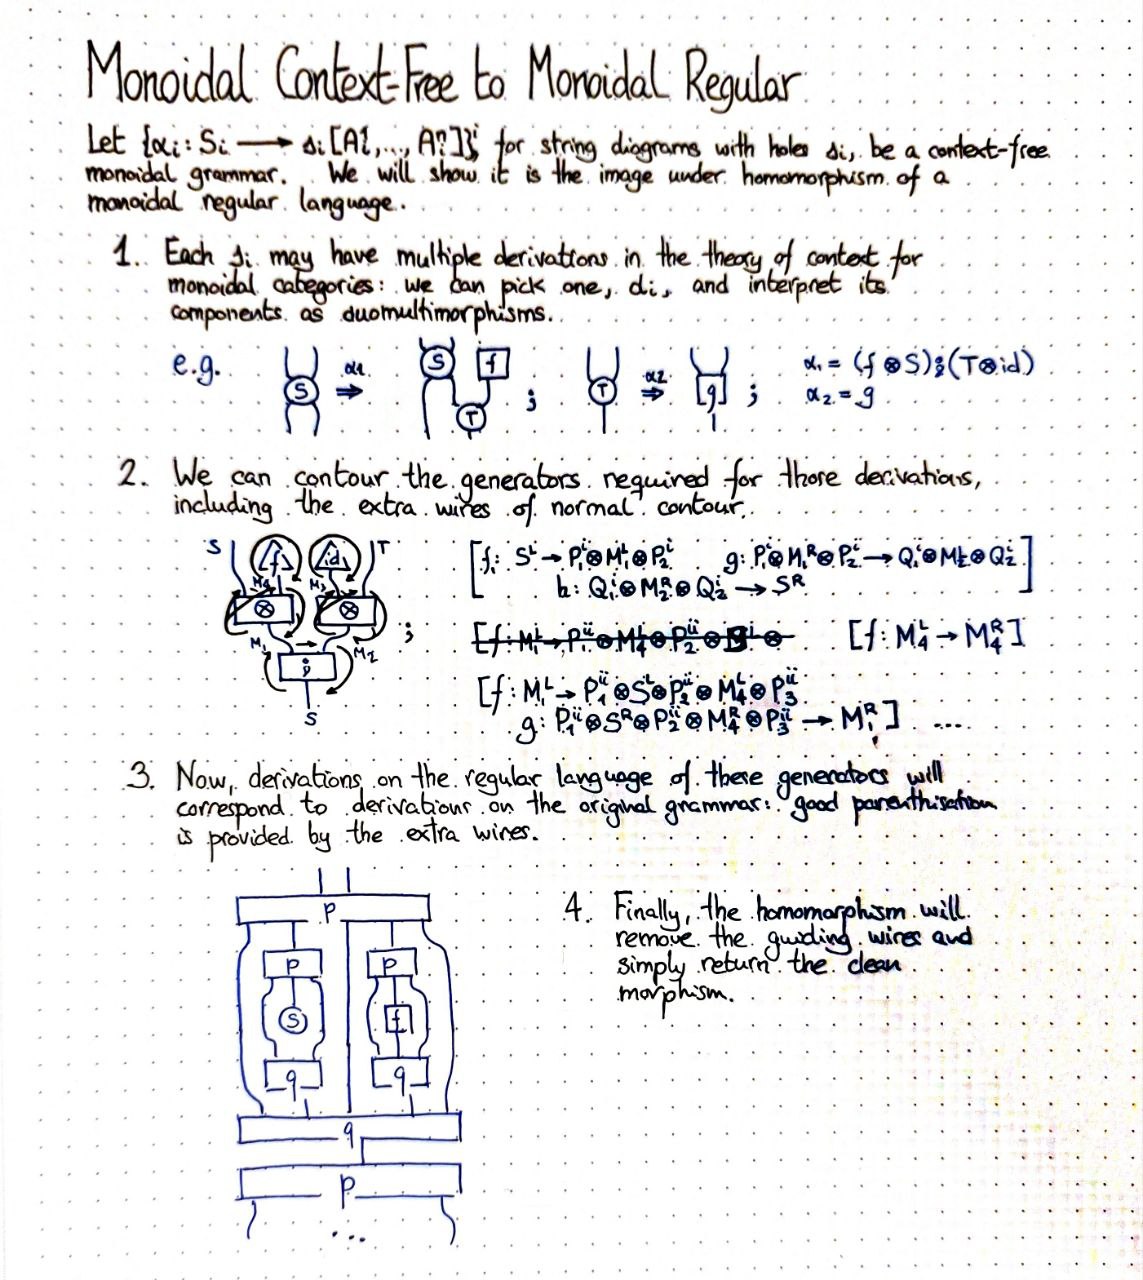 Monoidal Context-Free to Monoidal Regular
Let {αi : Si ⟶ si [Ai¹, ..., Aiⁿ]}i for string diagrams with holes si, be a context-free
monoidal grammar. We will show it is the image under homomorphism of a
monoidal regular language.
1. Each si may have multiple derivations in the theory of context for
monoidal categories: we can pick one, di, and interpret its
components as duomultimorphisms.
e.g. S α1 ⇒ S f T ; T α2 ⇒ g ; α1 = (f ⊗ S) ⨾ (T ⊗ id)
α2 = g
2. We can contour the generators required for those derivations,
including the extra wires of normal contour.
S f id T
M4 M3
⊗ ⊗
M1 → M2
⨾
S
;
[f: Sᴸ → P₁ⁱ⊗M₁ᴸ⊗P₂ⁱ g: P₁ⁱ⊗M₁ᴿ⊗P₂ⁱ → Q₁ⁱ⊗M₂ᴸ⊗Q₂ⁱ
h: Q₁ⁱ⊗M₂ᴿ⊗Q₂ⁱ → Sᴿ]
[f: M₄ᴸ → M₄ᴿ]
[f: M₁ᴸ → P₁ⁱⁱ⊗Sᴸ⊗P₂ⁱⁱ⊗M₄ᴸ⊗P₃ⁱⁱ
g: P₁ⁱⁱ⊗Sᴿ⊗P₂ⁱⁱ⊗M₄ᴿ⊗P₃ⁱⁱ → M₁ᴿ] ....
3. Now, derivations on the regular language of these generators will
correspond to derivations on the original grammar: good parenthisation
is provided by the extra wires.
p
p p
S f
q q
q
p
...
4. Finally, the homomorphism will
remove the guiding wires and
simply return the clean
morphism.